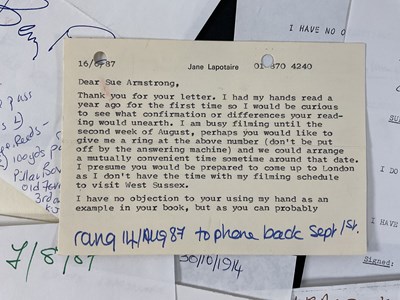 16/6/87 Jane Lapotaire 01 870 4240
Dear Sue Armstrong,
Thank you for your letter. I had my hands read a
year ago for the first time so I would be curious
to see what confirmation or differences your read-
ing would unearth. I am busy filming until the
second week of August, perhaps you would like
to give me a ring at the above number (don't be put
off by the answering machine) and we could arrange
a mutually convenient time sometime around that date.
I presume you would be prepared to come up to London
as I don't have the time with my filming schedule
to visit West Sussex.
I have no objection to your using my hand as an
example in your book, but as you can probably
rang 14/AUG 87 to phone back Sept/1st.
I HAVE NO O
7/8/87
30/10/1914
Signed:
I HAVE